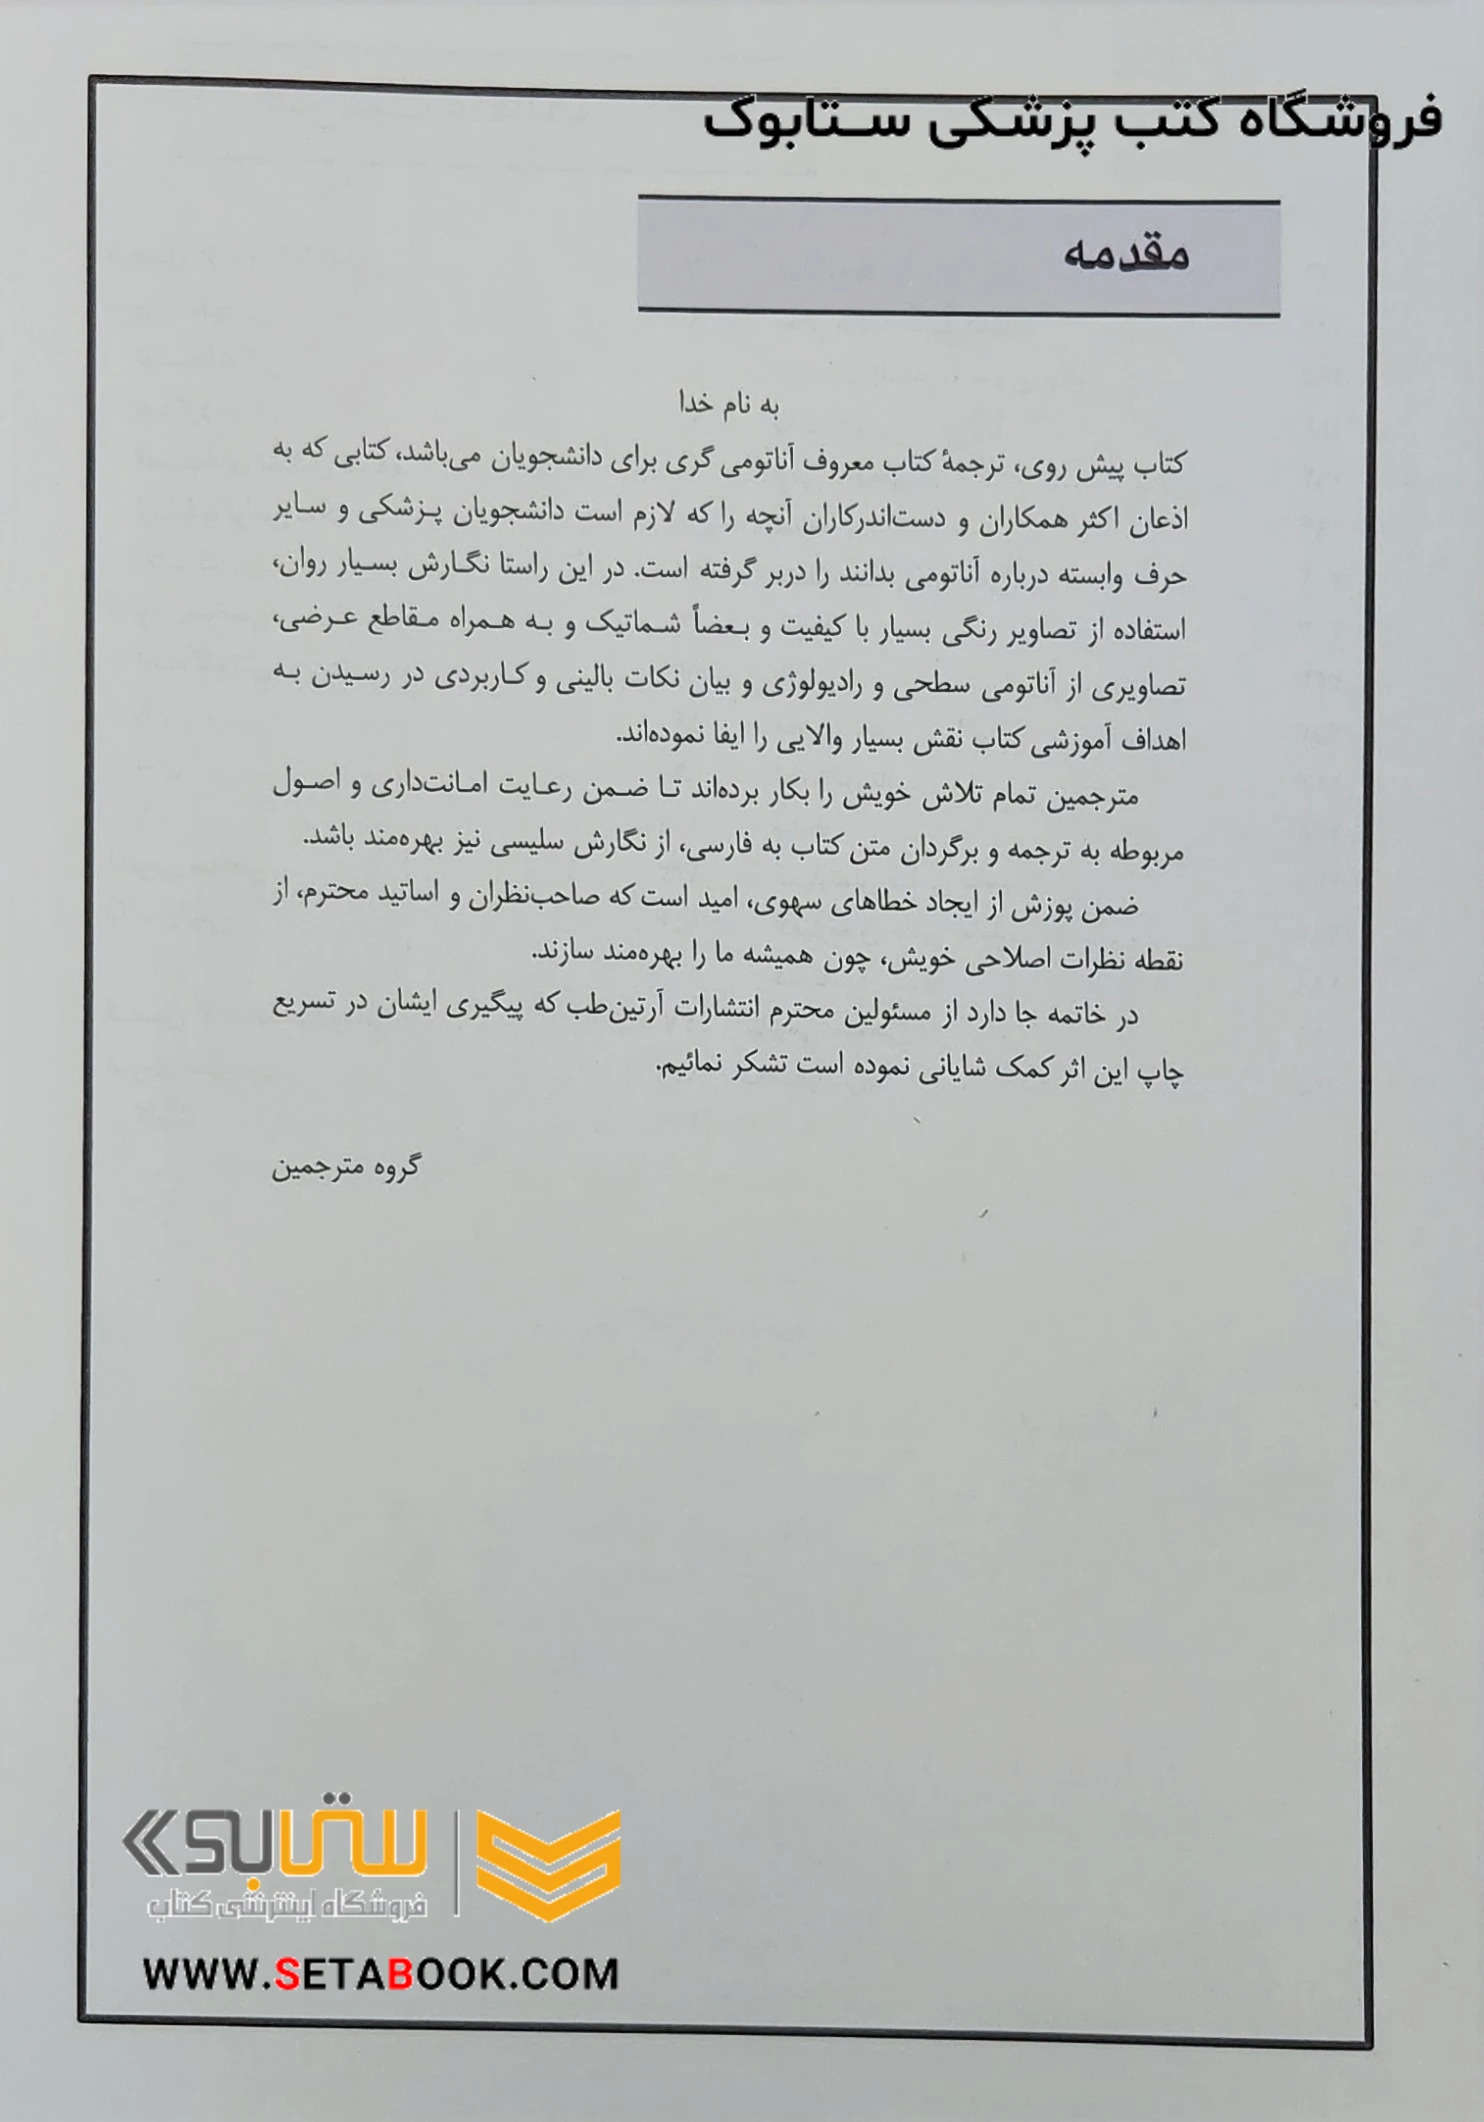 فروشگاه کتب پزشکی ستابوک
مقدمه
به نام خدا
کتاب پیش روی، ترجمهٔ کتاب معروف آناتومی گری برای دانشجویان می‌باشد، کتابی که به
اذعان اکثر همکاران و دست‌اندرکاران آنچه را که لازم است دانشجویان پزشکی و سایر
حرف وابسته درباره آناتومی بدانند را دربر گرفته است. در این راستا نگارش بسیار روان،
استفاده از تصاویر رنگی بسیار با کیفیت و بعضاً شماتیک و به همراه مقاطع عرضی،
تصاویری از آناتومی سطحی و رادیولوژی و بیان نکات بالینی و کاربردی در رسیدن به
اهداف آموزشی کتاب نقش بسیار والایی را ایفا نموده‌اند.
مترجمین تمام تلاش خویش را بکار برده‌اند تا ضمن رعایت امانت‌داری و اصول
مربوطه به ترجمه و برگردان متن کتاب به فارسی، از نگارش سلیسی نیز بهره‌مند باشد.
ضمن پوزش از ایجاد خطاهای سهوی، امید است که صاحب‌نظران و اساتید محترم، از
نقطه نظرات اصلاحی خویش، چون همیشه ما را بهره‌مند سازند.
در خاتمه جا دارد از مسئولین محترم انتشارات آرتین‌طب که پیگیری ایشان در تسریع
چاپ این اثر کمک شایانی نموده است تشکر نمائیم.
گروه مترجمین
ستابوک
فروشگاه اینترنتی کتاب
WWW.SETABOOK.COM